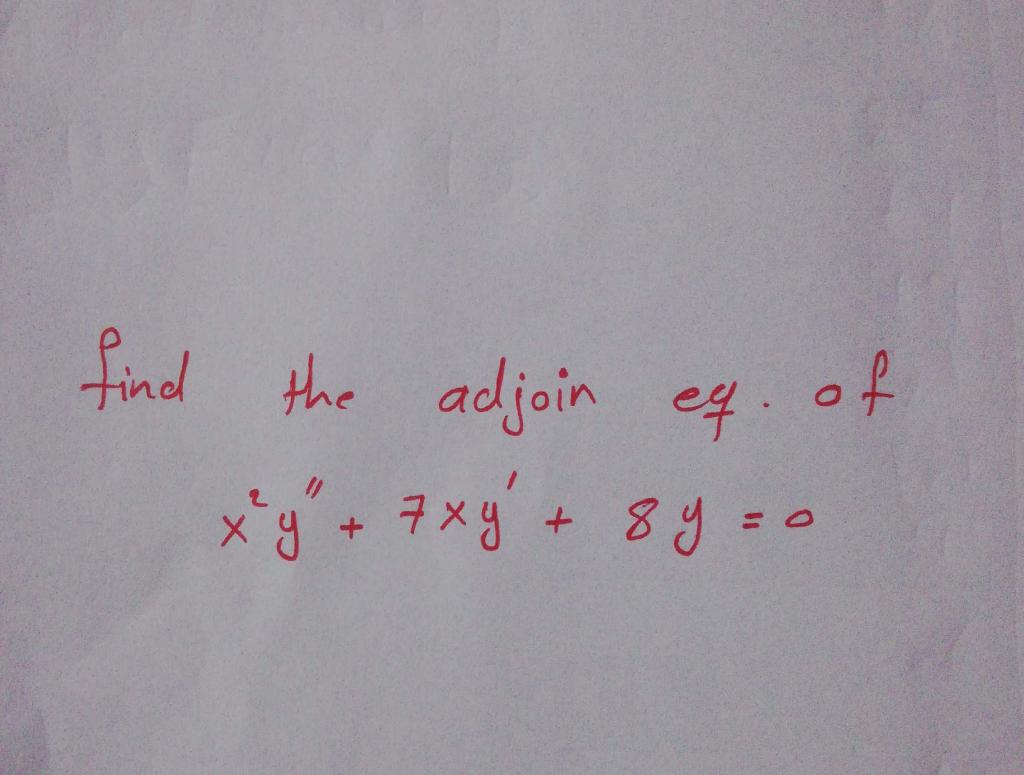 find the adjoin eq. of
x²y" + 7xy' + 8y = 0